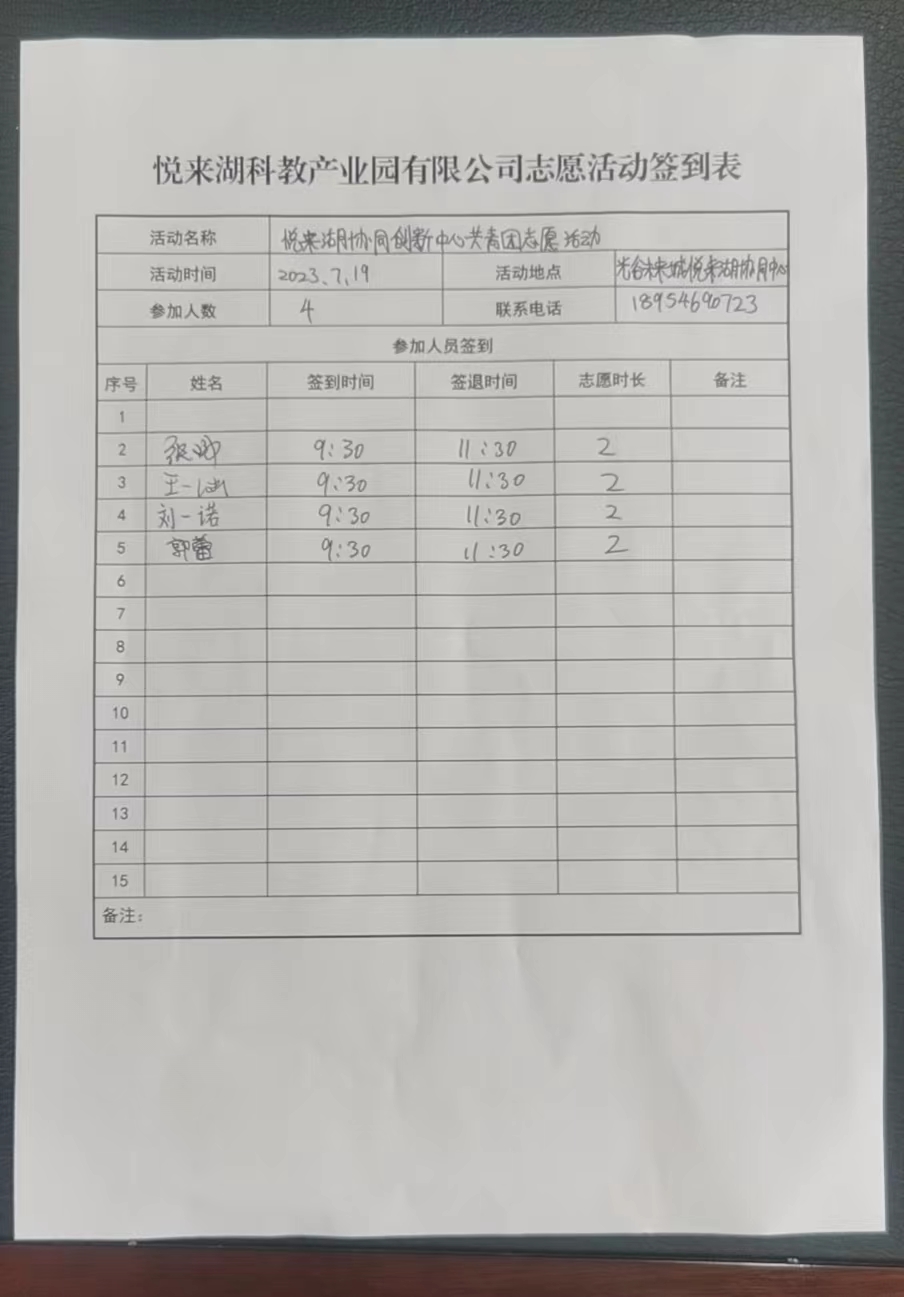 悦来湖科教产业园有限公司志愿活动签到表
活动名称 悦来湖协同创新中心共青团志愿活动
活动时间 2023.7.19 活动地点 光谷未来城悦来湖协同中心
参加人数 4 联系电话 18954690723
参加人员签到
序号 姓名 签到时间 签退时间 志愿时长 备注
1
2 张帅 9:30 11:30 2
3 王一涵 9:30 11:30 2
4 刘一诺 9:30 11:30 2
5 郭蕾 9:30 11:30 2
6
7
8
9
10
11
12
13
14
15
备注: